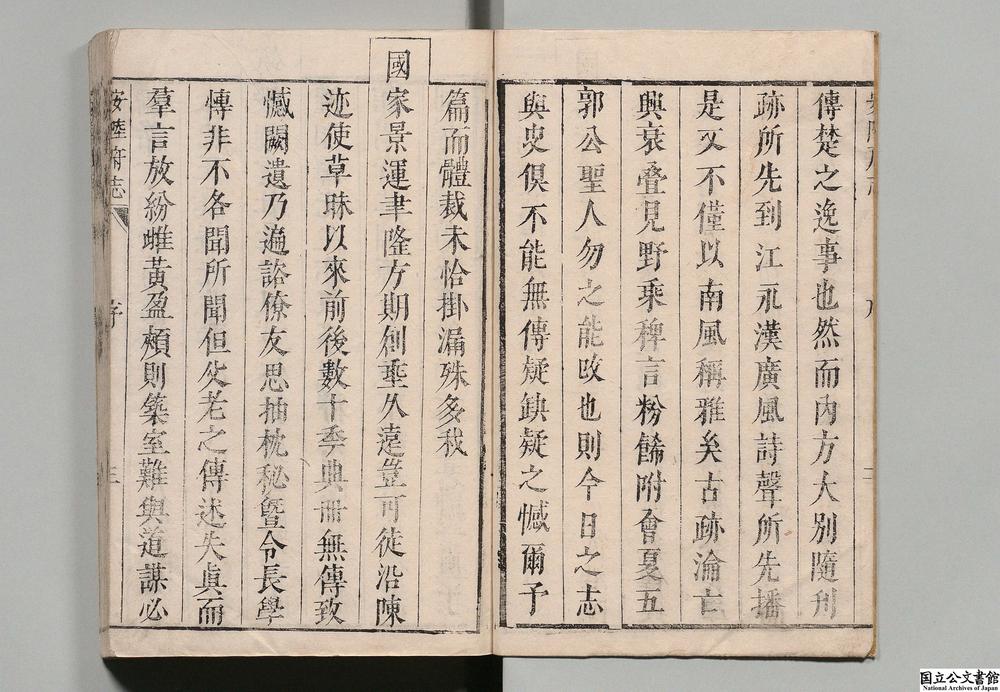 傳楚之逸事也然而內方大别隨刋
跡所先到江永漢廣風詩聲所先播
是又不僅以南風稱雅矣古跡淪亡
興衰叠見野乘稗言粉餙附會夏五
郭公聖人勿之能改也則今日之志
與史俱不能無傳疑缺疑之憾爾予
篇而體裁未恰掛漏殊多我
國家景運聿隆方期創垂久遠豈可徒沿陳
迹使草昧以來前後數十季典册無傳致
憾闕遺乃遍諮僚友思抽枕秘暨令長學
愽非不各聞所聞但父老之傳迷失眞而
羣言放紛雌黃盈頰則築室難與道謀必
安陸府志
序
三
国立公文書館
National Archives of Japan